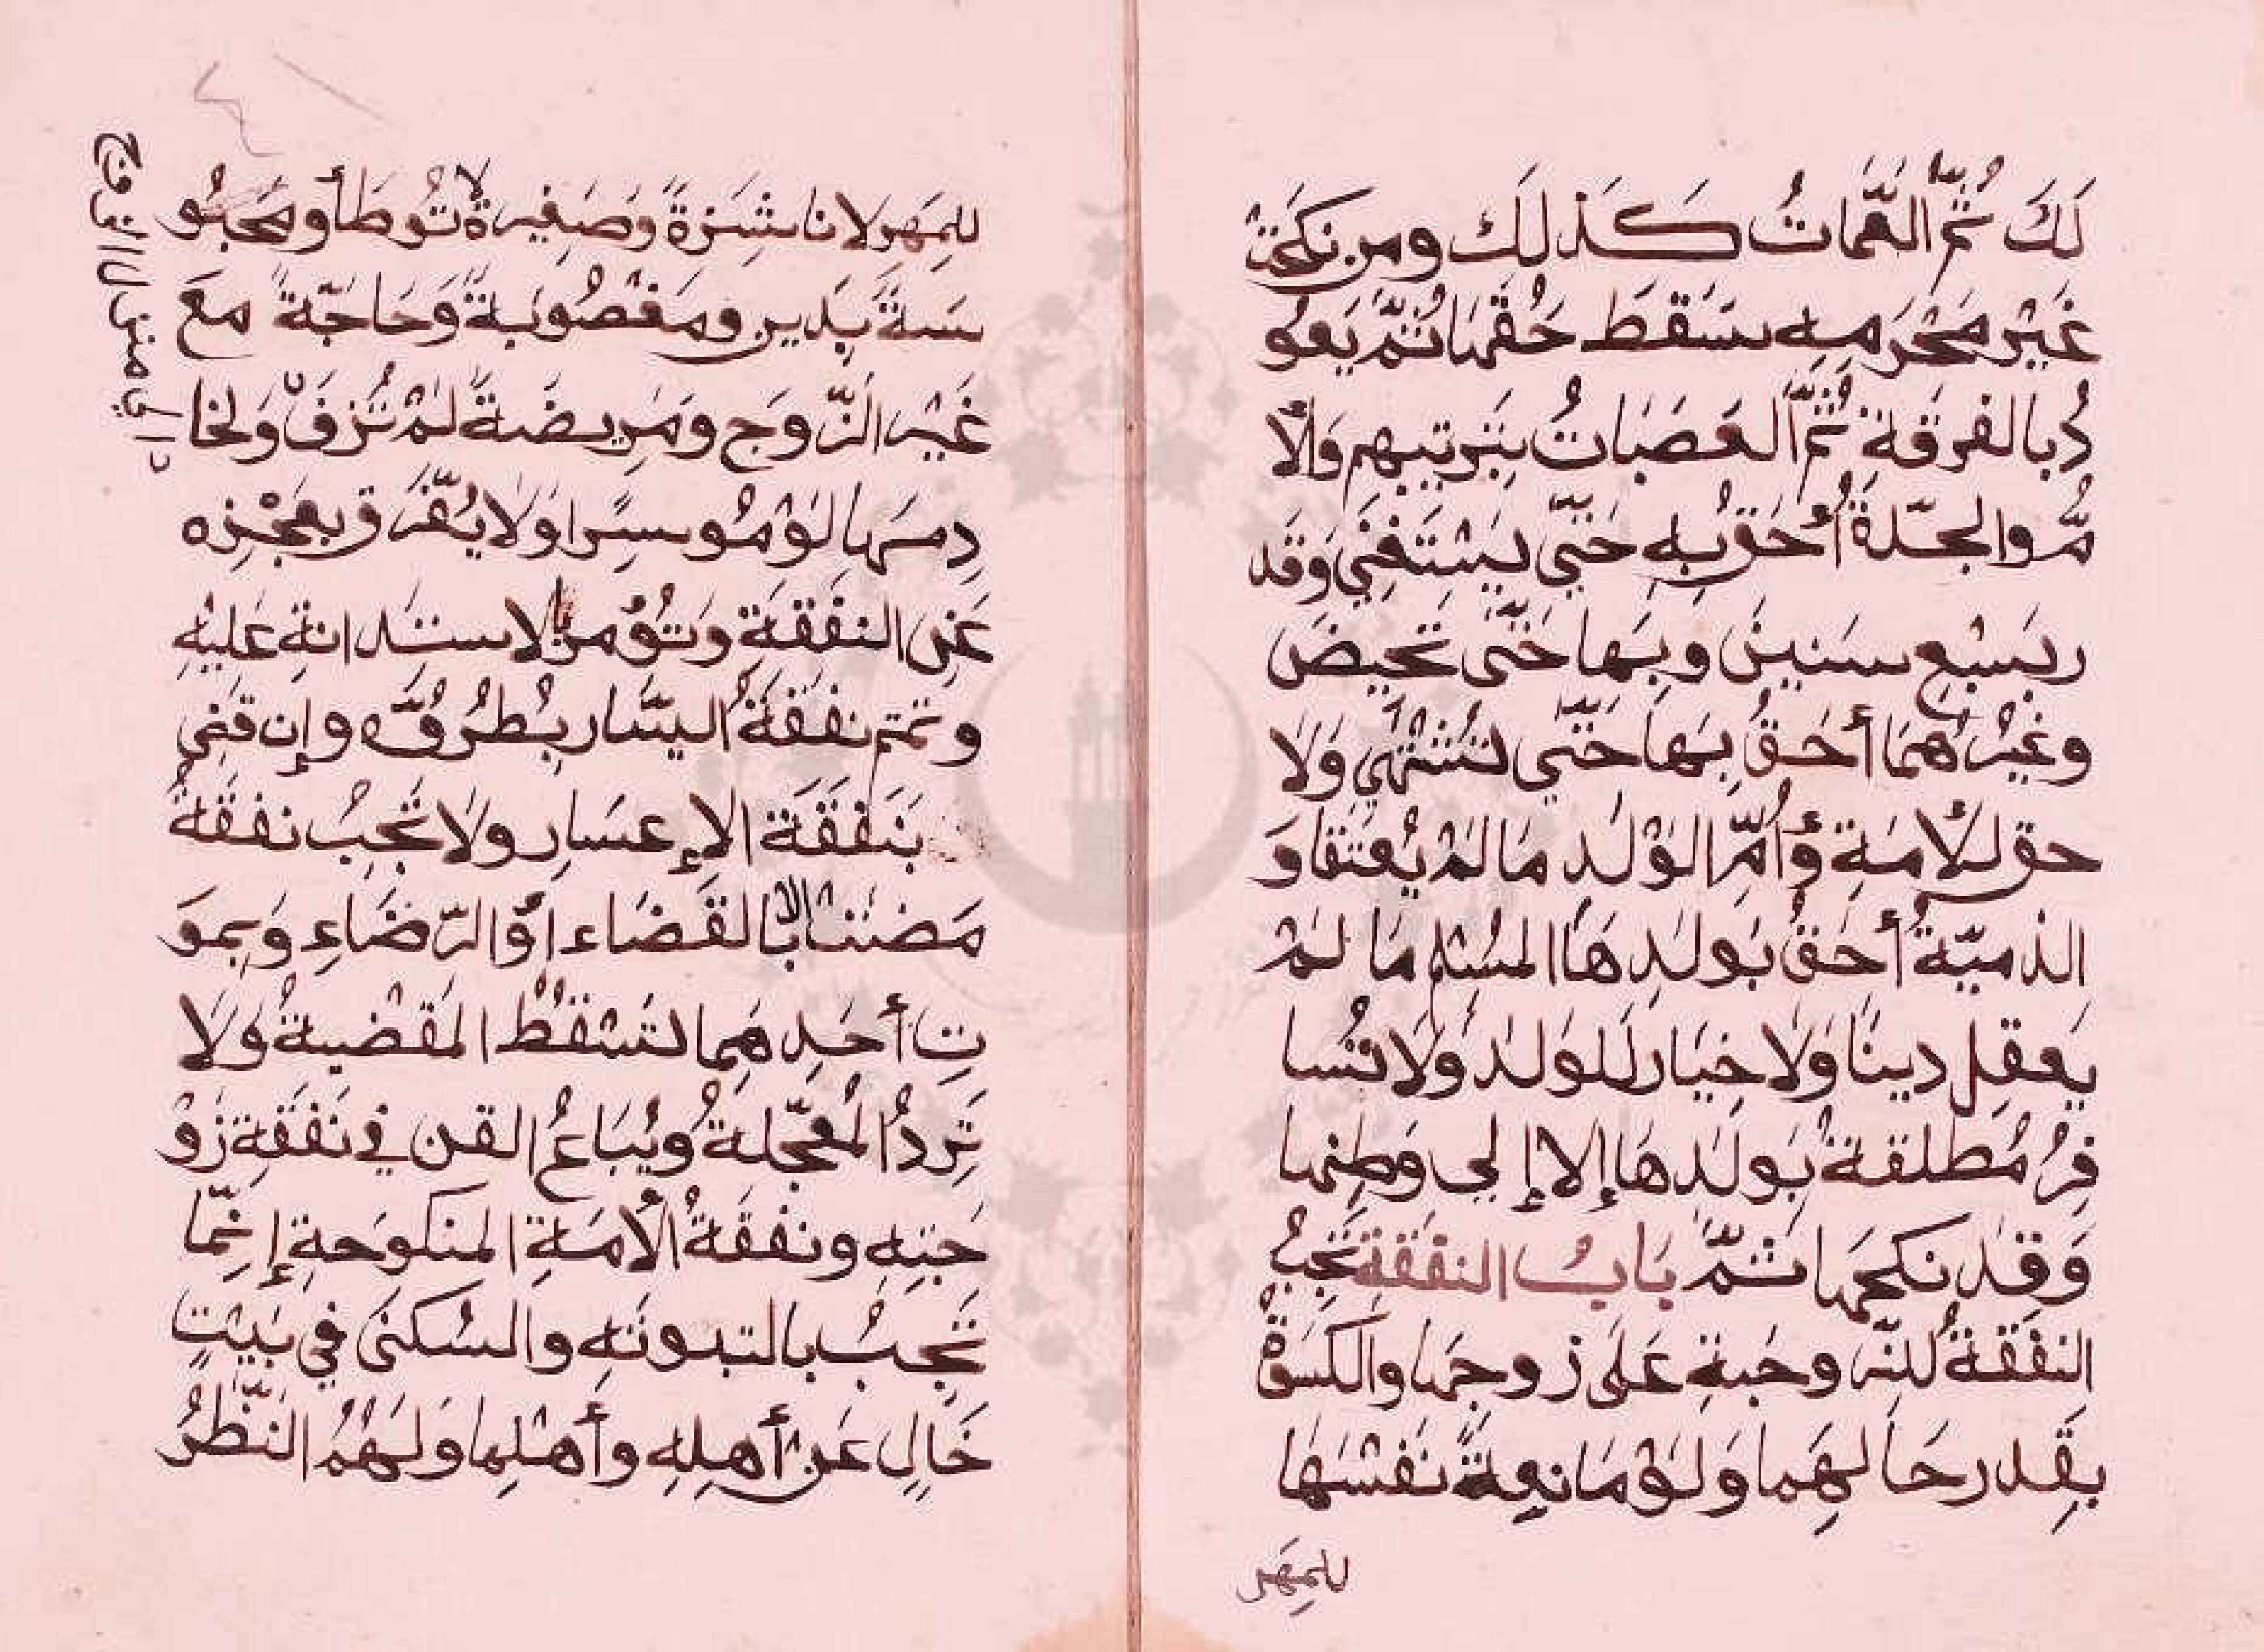 لَكَ ثُمَّ العَمَّاتُ كَذلَك ومن نكَحَتْ
غَيْر مَحْرَمِهِ سَقَطَ حَقُّهَا ثُمَّ يَعُو
دُ بالفرقَةِ ثُمَّ العَصَبَاتُ بتَرتيبهِم وَالأُ
مُّ والجدّةُ أحَقّ بِهِ حَتّي يَسْتَغنِي وَقَد
ر بسَبْعِ سَنينَ وبِهَا حَتّى تَحيضَ
وغيْرُهُمَا أحَقُّ بهَا حَتّي تُشْتَهَي وَلَا
حق للأمَةِ وَأُمِّ الوَلَدِ مَا لمْ يُعْتَقَا وَ
الذميّةُ أحَقُّ بوَلَدِهَا المسُلم مَا لمْ
يَعقِل دينًا وَلَا خيَارَ للوَلد وَلَا تُسا
فِرُ مُطلقةٌ بوَلدهَا إلا إلي وَطنِها
وَقد نكحَها ثَمّ بَابُ النفَقَةِ تَجبُ
النفَقةُ للزّوجَةِ عَلَى زوجِهَا وَالكسْوَةُ
بقَدر حَالهِما وَلَوْ مَانعةً نَفْسَهَا
للمَهر
للمَهر لا ناشزَةً وَصَغِيرةً لا تُوطَأ ومَحبُو
سَةً بدَين ومَغْصُوبةً وَحَاجّةً معَ
غَيْر الزّوَج ومَريضَةً لمْ تُزَفْ وَلخا
دِمهَا لوْ مُوسرًا وَلَا يُفَرّق بعَجْزه
عَن النفَقَةِ وَتُؤمر بالاستدانةِ عَليْهِ
وتمم نفَقَةُ اليسَار بطُرُوِّه وإن قَضَي
بنَفَقَة الإعسَار ولَا تَجبُ نفَقَةُ
مَضَتْ إلا بالقَضَاء اوِ الرّضَاءِ وَبمَو
تِ أحَدِهِمَا تَسْقُطُ المَقْضيةُ وَلَا
تُرَدُّ المُعَجّلةُ وَيُبَاعُ القن في نَفَقَةِ زَوْ
جَتِهِ ونفَقَةُ الأمَةِ المنكوحَةِ إنمّا
تَجبُ بالتبوئَهِ والسُكنَى في بَيْتٍ
خَالٍ عَنْ أهلِهِ وأهْلِها وَلهُمُ النّظرُ